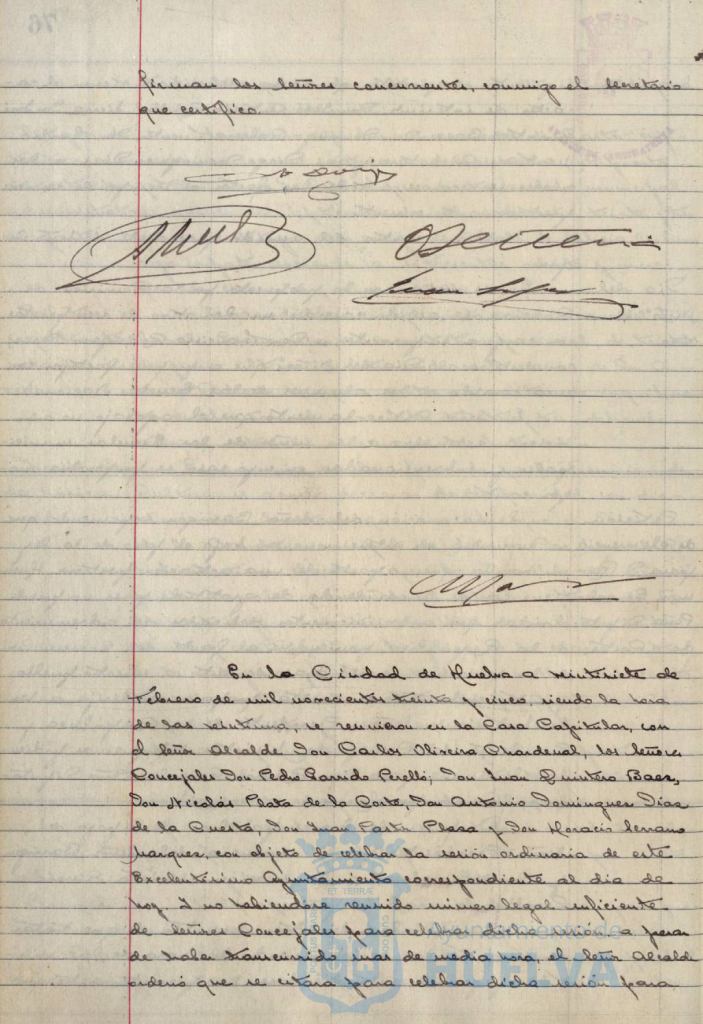 firman los señores concurrentes, conmigo el secretario
que certifico.
En la Ciudad de Huelva a veintisiete de
Febrero de mil novecientos treinta y cinco, siendo la hora
de las veintiuna, se reunieron en la Casa Capitular, con
el Señor Alcalde Don Carlos Oliveira Chardenal, los Señores
Concejales Don Pedro Garrido Perelló, Don Juan Quintero Baez,
Don Nicolás Plata de la Corte, Don Antonio Dominguez Diaz
de la Cuesta, Don Juan Plaza y Don Horacio Serrano
Marquez, con objeto de celebrar la sesión ordinaria de este
Excelentisimo Ayuntamiento correspondiente al dia de
hoy. Y no habiendose reunido número legal suficiente
de señores Concejales para celebrar dicha sesión a pesar
de haber transcurrido mas de media hora, el Señor Alcalde
ordenó que se citára para celebrar dicha sesión para
HUELVA